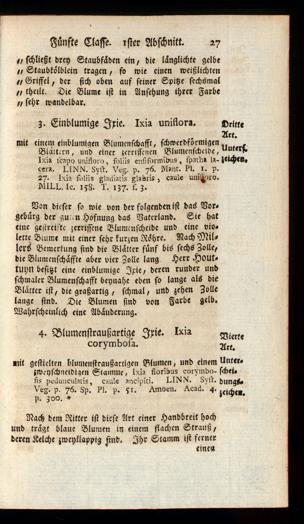 Fünfte Classe. 1ster Abschnitt. 27
„ schließt drey Staubfäden ein, die länglichte gelbe
„ Staubkölblein tragen, so wie einen weißlichten
„ Griffel, der sich oben auf seiner Spitze sechsmal
„ theilt. Die Blume ist in Ansehung ihrer Farbe
„ sehr wandelbar.
3. Einblumige Ixie. Ixia uniflora.
Dritte
Art.
mit einem einblumigen Blumenschafft, schwerdförmigen
Blättern, und einer zerrissenen Blumenscheide,
Ixia scapo unifloro, foliis ensiformibus, spatha la-
cera. LINN. Syst. Veg. p. 76. Mant. Pl. 1. p.
27. Ixia foliis gladiatis glabris, caule unifloro.
MILL. Ic. 158. T. 137. f. 3.
Untersf.
zeichen.
Von dieser so wie von der folgenden ist das Vor-
gebürg der guten Hofnung das Vaterland. Sie hat
eine gestreifte zerrissene Blumenscheide und eine vio-
lette Blume mit einer sehr kurzen Röhre. Nach Mil-
lers Bemerkung sind die Blätter fünf bis sechs Zolle,
die Blumenschäffte aber vier Zolle lang Herr Hout-
tuyn besitzt eine einblumige Ixie, deren runder und
schmaler Blumenschafft beynahe eben so lange als die
Blätter ist, die graßartig, schmal, und zehen Zolle
lange sind. Die Blumen sind von Farbe gelb.
Wahrscheinlich eine Abänderung.
4. Blumenstraußartige Ixie. Ixia
corymbosa.
Vierte
Art.
mit gestielten blumenstraußartigen Blumen, und einem
zweyschneidigen Stamme, Ixia floribus corymbo-
sis pedunculatis, caule ancipiti. LINN. Syst.
Veg. p. 76. Sp. Pl. p. 51. Amoen. Acad. 4.
p. 300. *
Unter-
schei-
dungs-
zeichen.
Nach dem Ritter ist diese Art einer Handbreit hoch
und trägt blaue Blumen in einem flachen Strauß,
deren Kelche zweyklappig sind. Ihr Stamm ist ferner
einen